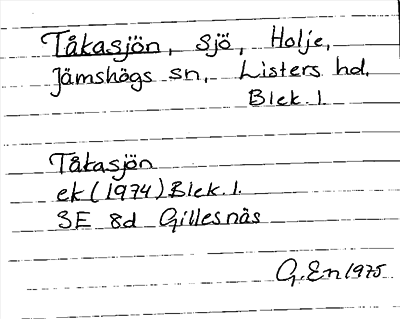 Tåkasjön, sjö, Holje,
Jämshögs sn, Listers hd.
Blek. l.
Tåkasjön
ek (1974) Blek. l.
SE 8d Gillesnäs
G. En 1975